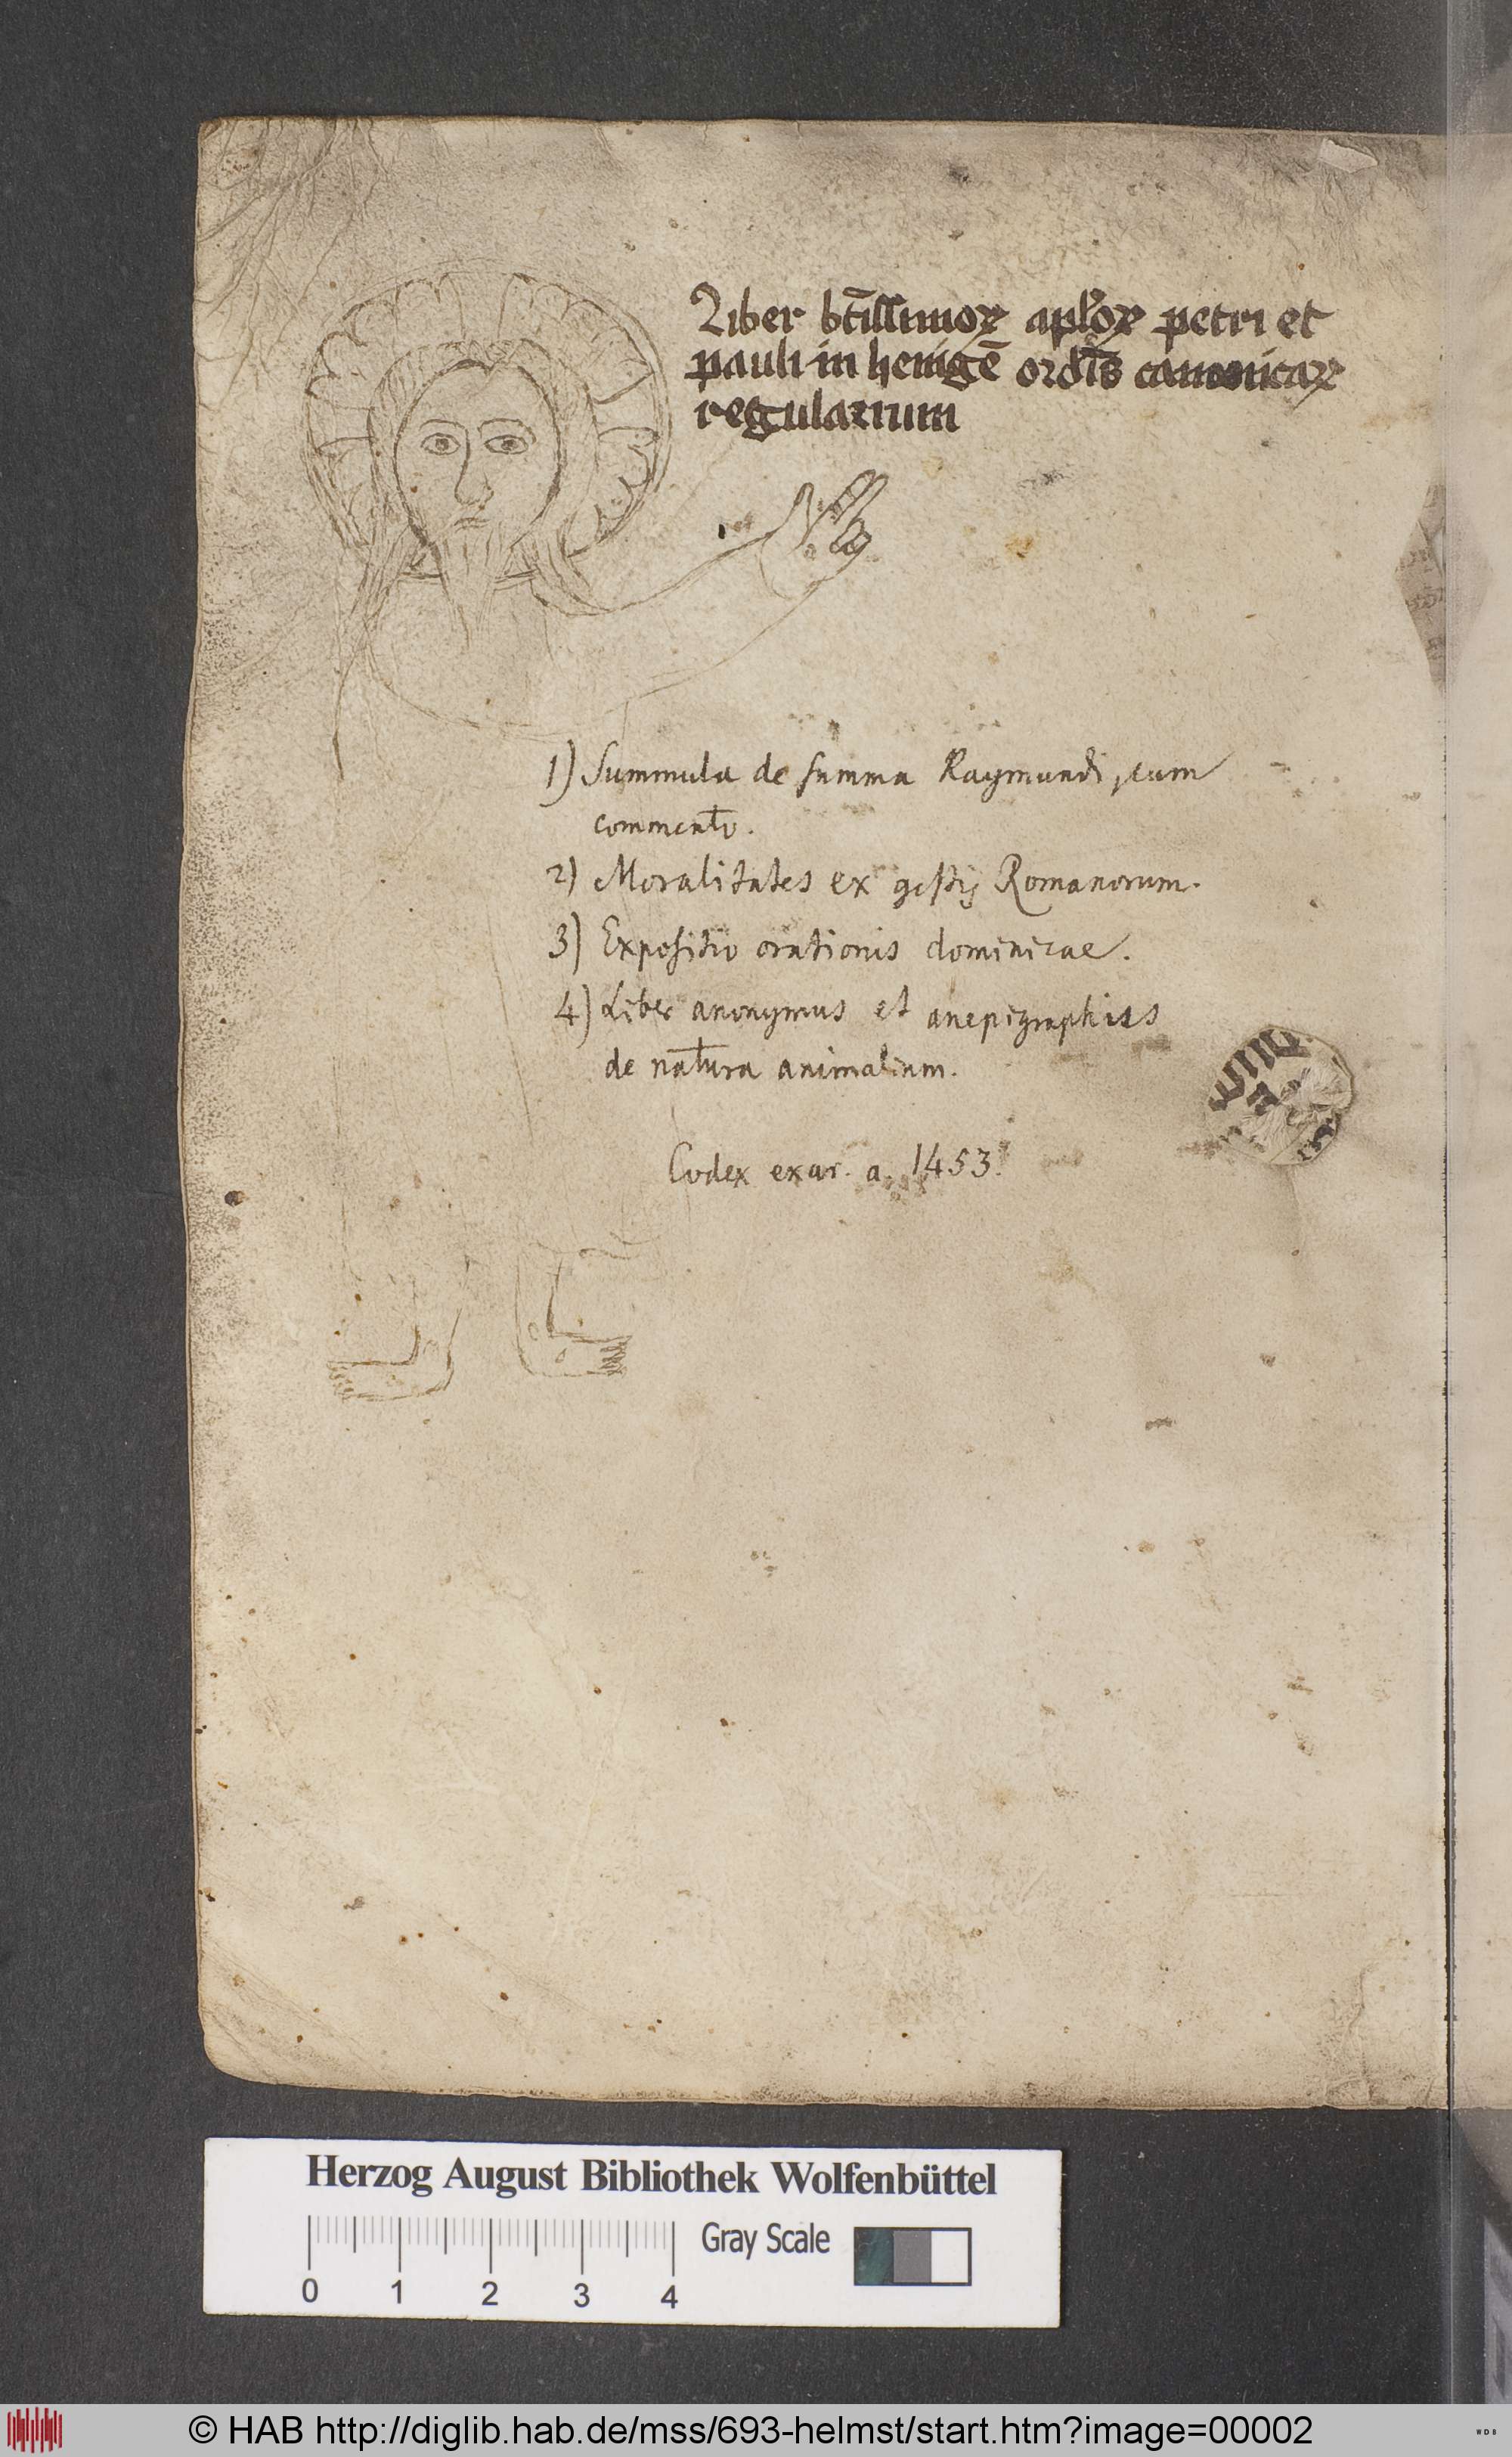 Liber bt̄issimoꝝ apl'oꝝ petri et
pauli in henīgē ordīs canonicaꝝ
regularium
1) Summula de summa Raymundi, cum
commento.
2) Moralitates ex gestis Romanorum.
3) Expositio orationis dominicae.
4) Liber anonymus et anepigraphus
de natura animalium.
Codex exar. a. 1453.
Herzog August Bibliothek Wolfenbüttel
Gray Scale
0 1 2 3 4
© HAB http://diglib.hab.de/mss/693-helmst/start.htm?image=00002
WDB